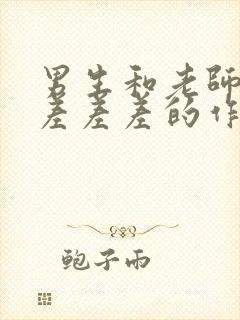 男生和老師
差差差的作
鲍子雨